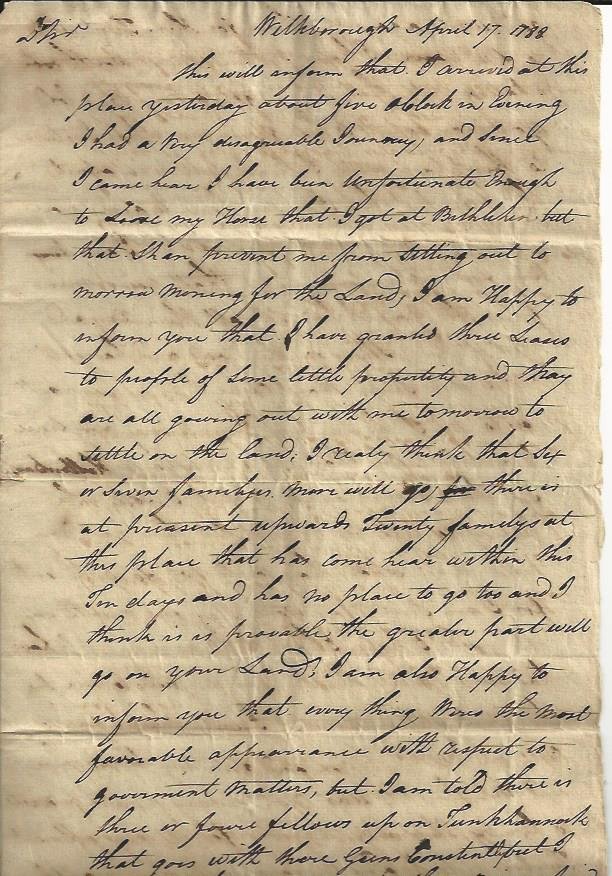 Sir Wilkborough April 17. 1788
this will inform that I arrived at this
place yesterday about five oClock in Evening
I had a very disagreeable Journey, and since
I came hear I have been Unfortunate Enough
to Loose my Horse that I got at Bethlehem but
that Shan prevent me from Setting out to
morrow Morning for the Land, I am Happy to
inform you that I have granted three Leases
to people of Some little propertity and thay
are all gowing out with me tomorrow to
Settle on the land; I realy think that Six
or Seven familyes more will go, for there is
at preasent upwards Twenty familys at
this place that has come hear within this
Ten days and has no place to go too and I
think is is provable the greater part will
go on your Land; I am also Happy to
inform you that every thing Wires the most
favorable appearrance with respect to
goverment Matters, but I am told there is
three or foure fellows up on Tunkhannock
that goes with there Guns Constent but I